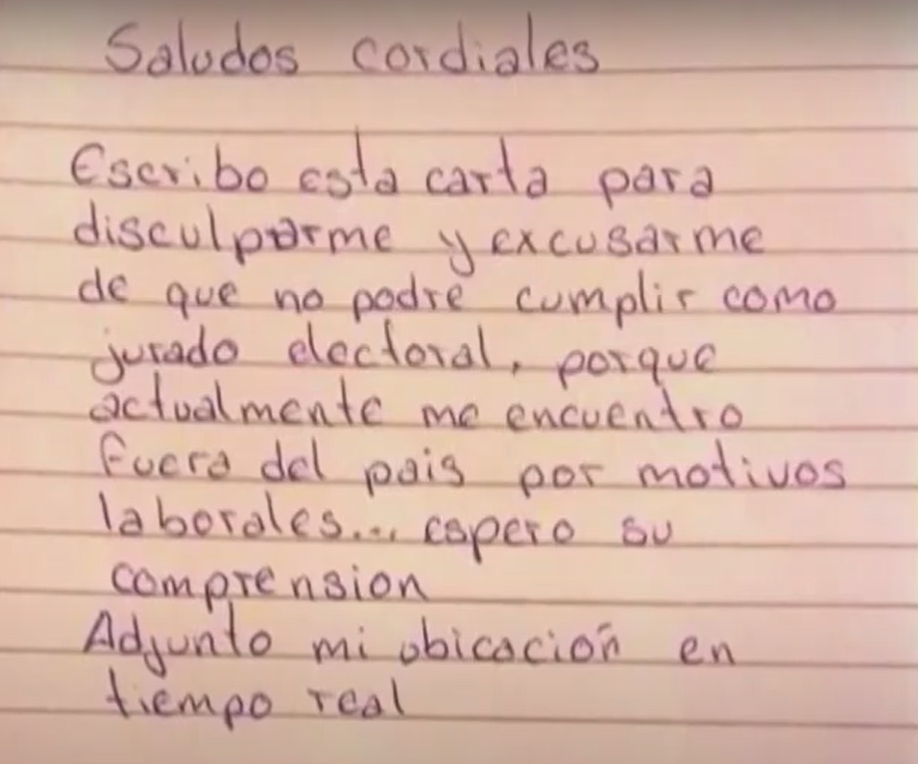 Saludos cordiales
Escribo esta carta para
disculparme y excusarme
de que no podre cumplir como
jurado electoral, porque
actualmente me encuentro
fuera del pais por motivos
laborales... espero su
comprension
Adjunto mi ubicación en
tiempo real